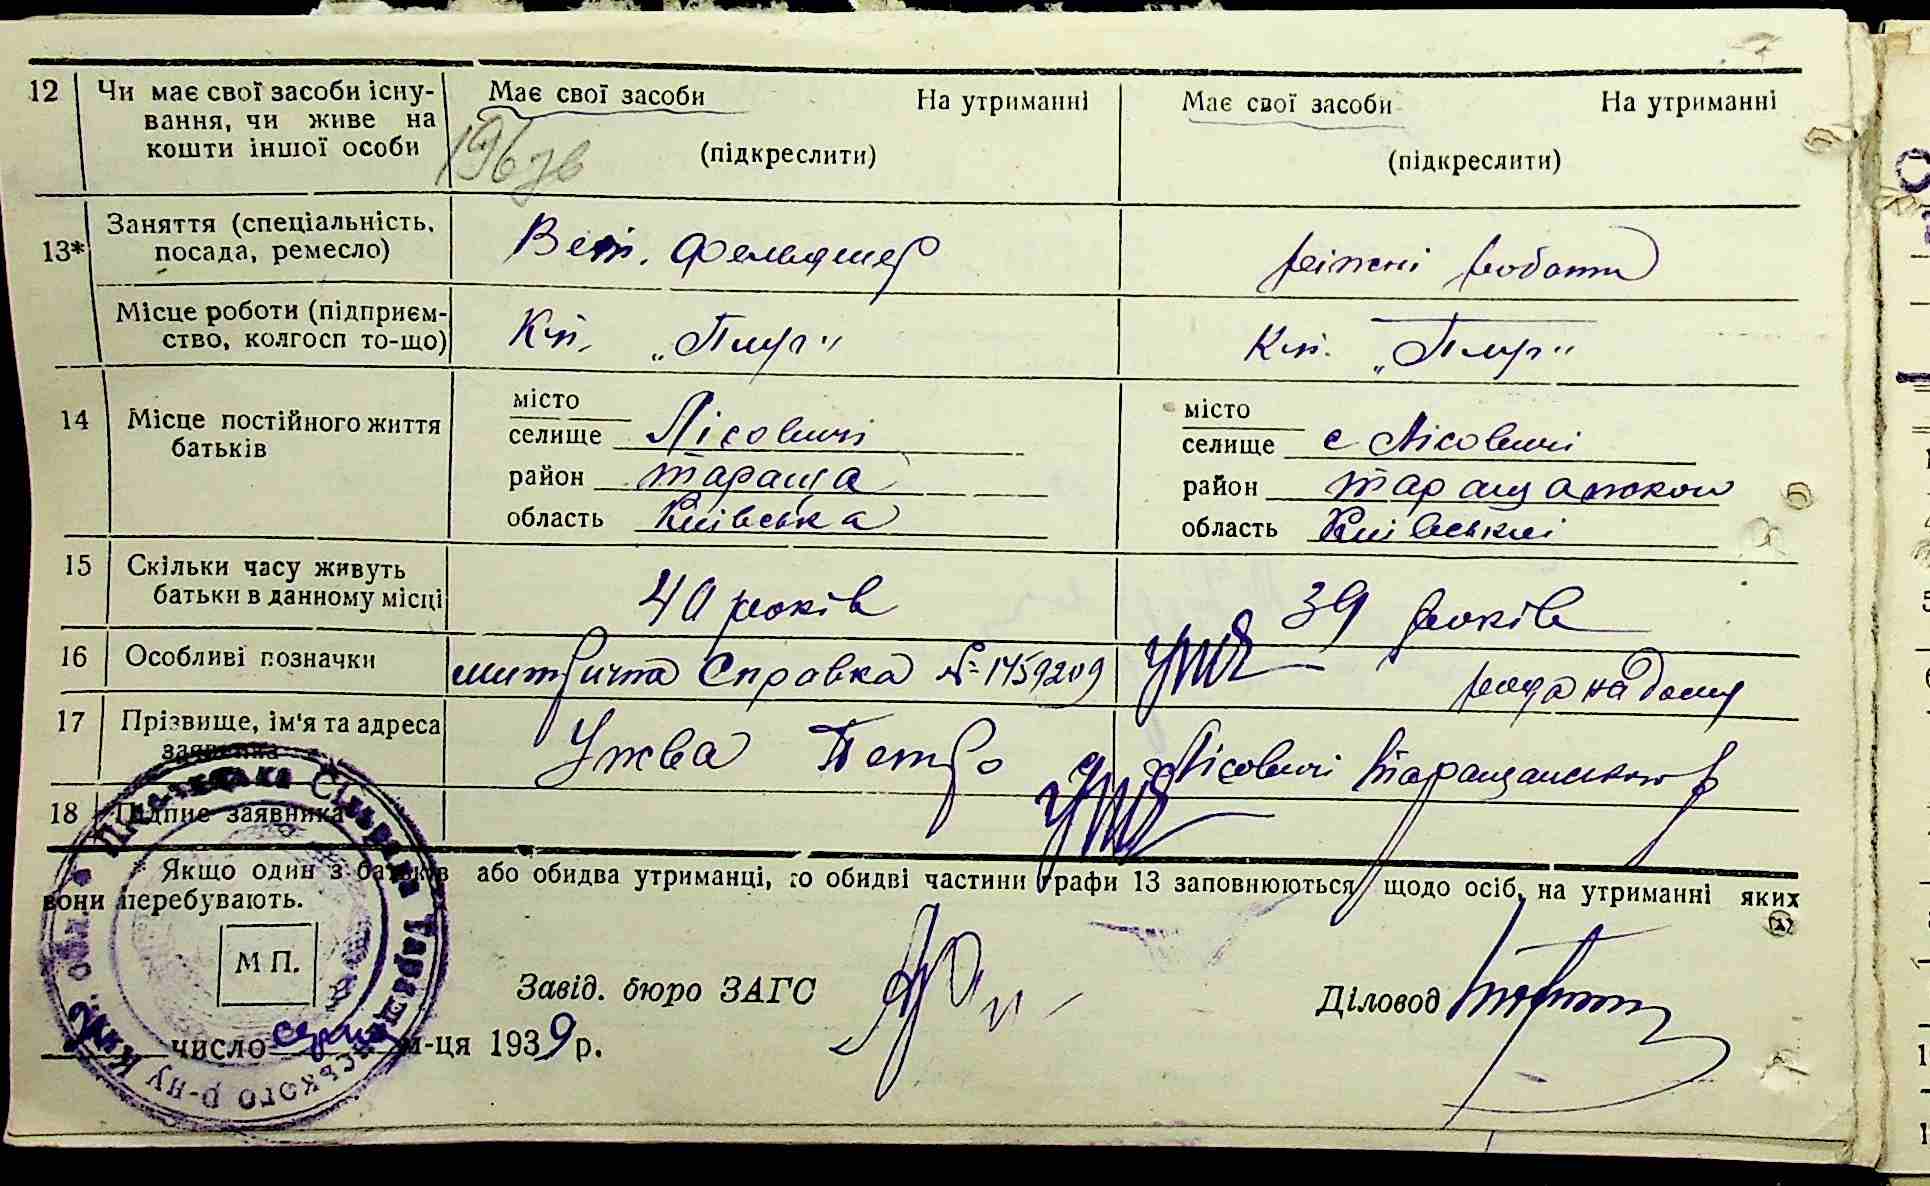 12 Чи має свої засоби існу-
вання, чи живе на
кошти іншої особи
Має свої засоби На утриманні
(підкреслити)
Має свої засоби На утриманні
(підкреслити)
13* Заняття (спеціальність,
посада, ремесло)
Вет. фельдшер
ріжні роботи
Місце роботи (підприєм-
ство, колгосп то-що)
Кгп. „Плуг"
Кгп. „Плуг"
14 Місце постійного життя
батьків
місто
селище Лісовичі
район Тараща
область Київська
місто
селище с Лісовичі
район Таращанского
область Київські
15 Скільки часу живуть
батьки в данному місці
40 років
39 років
16 Особливі позначки
Справка № 1459209
рода на дому
17 Прізвище, ім'я та адреса
заявника
Ужва Петро
Лісовичі Таращанського р
18 Підпис заявника
* Якщо один з батьків або обидва утриманці, то обидві частини графи 13 заповнюються щодо осіб, на утриманні яких
вони перебувають.
М П.
Завід. бюро ЗАГС
Діловод
число серпня м-ця 1939 р.
Сільрада Таращанського р-ну Київ. обл.